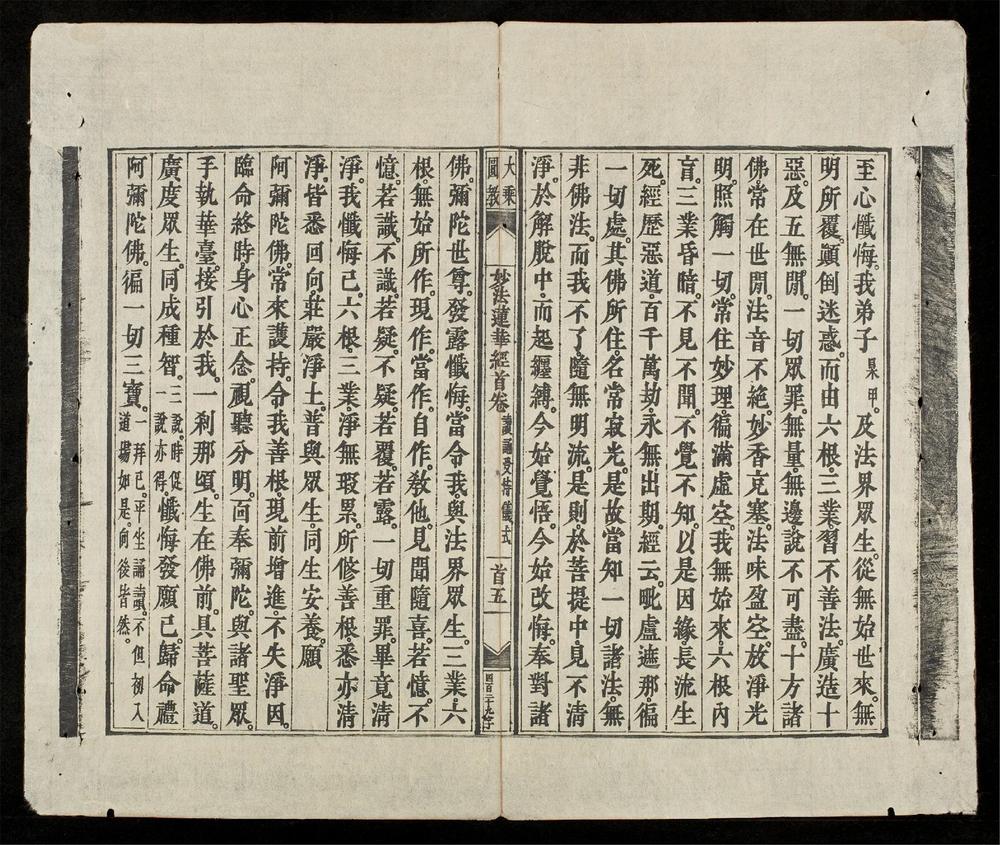 至心懺悔。我弟子某甲。及法界眾生。從無始世來。無
明所覆。顚倒迷惑。而由六根。三業。習不善法。廣造十
惡。及五無閒。一切眾罪。無量無邊。說不可盡。十方諸
佛。常在世閒。法音不絕。妙香充塞。法味盈空。放淨光
明。照觸一切。常住妙理。徧滿虛空。我無始來。六根內
盲。三業昏暗。不見不聞。不覺不知。以是因緣。長流生
死。經歷惡道。百千萬劫。永無出期。經云。毗盧遮那。徧
一切處。其佛所住。名常寂光。是故當知。一切諸法。無
非佛法。而我不了。隨無明流。是則於菩提中。見不清
淨。於解脫中。而起纏縛。今始覺悟。今始改悔。奉對諸
大乘
圓教
妙法蓮華經首卷 讀誦受持儀式
首五
佛。彌陀世尊。發露懺悔。當令我。與法界眾生。三業。六
根。無始所作。現作。當作。自作。教他。見聞隨喜。若憶。不
憶。若識。不識。若疑。不疑。若覆。若露。一切重罪。畢竟清
淨。我懺悔已。六根。三業。淨無瑕累。所修善根。悉亦清
淨。皆悉回向。莊嚴淨土。普與眾生。同生安養。願
阿彌陀佛。常來護持。令我善根。現前增進。不失淨因。
臨命終時。身心正念。視聽分明。面奉彌陀。與諸聖眾。
手執華臺。接引於我。一剎那頃。生在佛前。具菩薩道。
廣度眾生。同成種智。三說。時促一說亦得。懺悔發願已。歸命禮
阿彌陀佛。徧一切三寶。一拜已。平坐誦讀。不但初入道場如是。向後皆然。